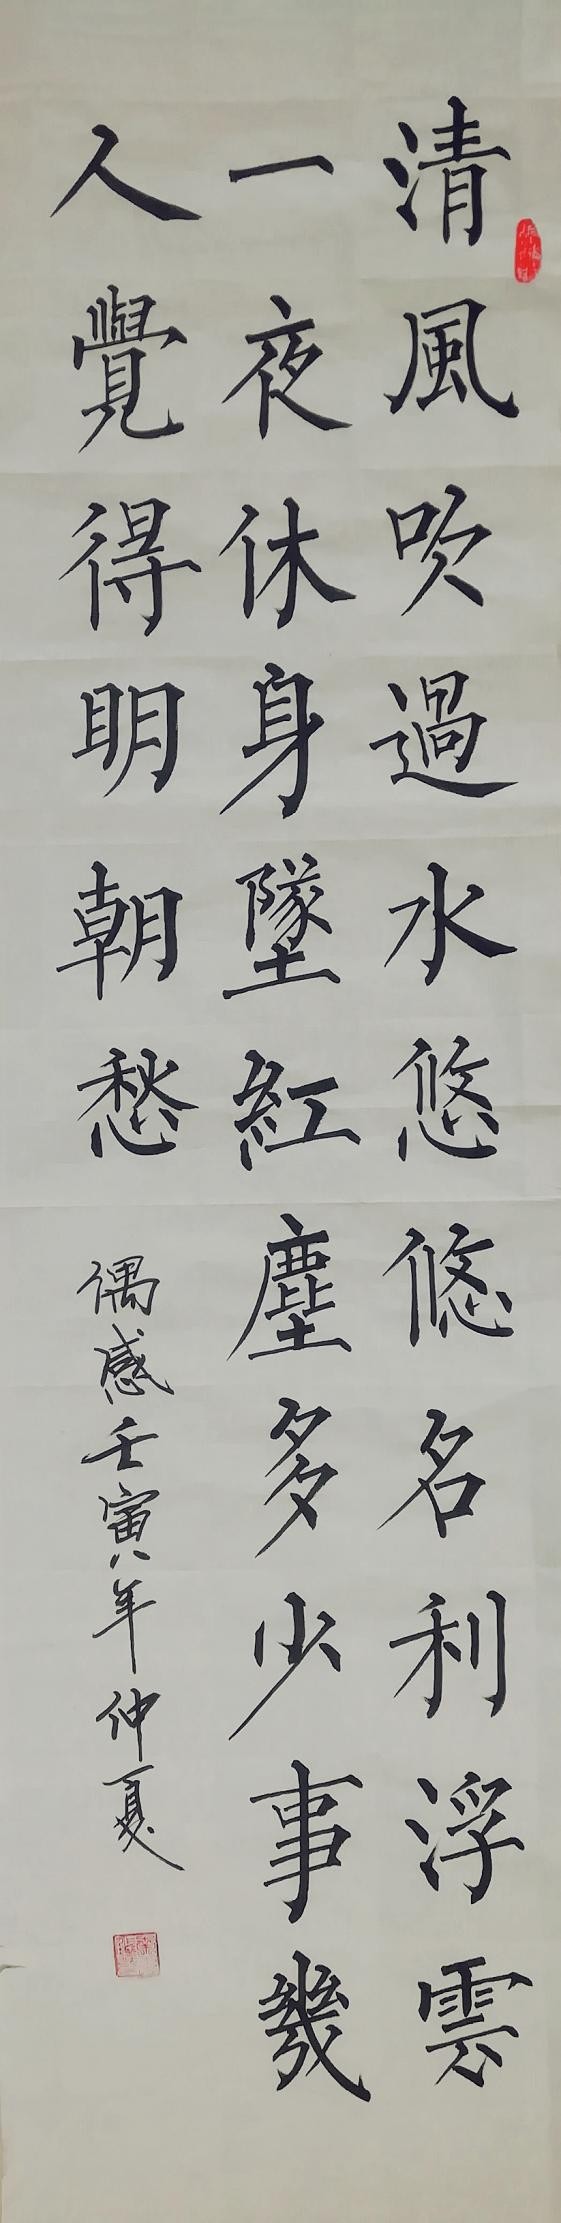 清風吹過水悠悠名利浮雲
一夜休身墜紅塵多少事幾
人覺得明朝愁
偶感壬寅年仲夏